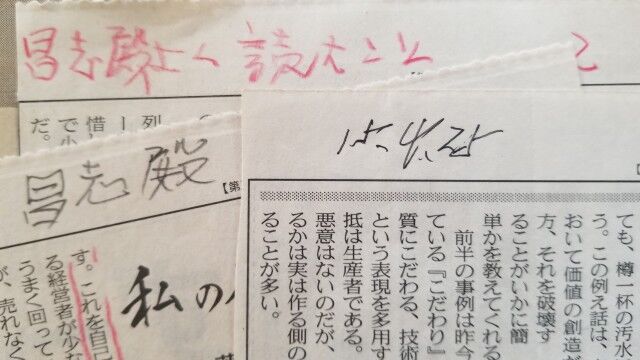 昌志殿よく読むこと
列
ー
惜し
で小
だ。
昌志殿
【第
私の
す。これを自己
る経営者が少な
うまく回って
が、売れなく
ても、樽一杯の汚水
う。この例え話は、
おいて価値の創造
方、それを破壊す
ることがいかに簡
単かを教えてくれる
前半の事例は昨今
ている『こだわり』
質にこだわる、技術
という表現を多用す
抵は生産者である。
悪意はないのだが、
るかは実は作る側の
ることが多い。